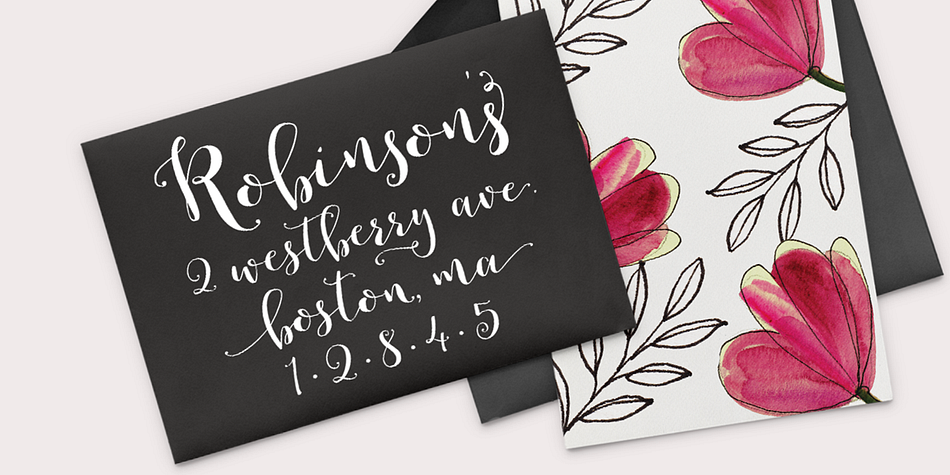 Robinson's
2 westberry ave.
boston, ma
1.2.8.4.5